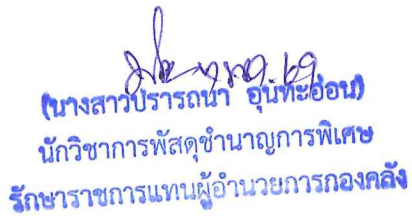 (นางสาวปรารถนา อุนัทะอ่อน)
นักวิชาการพัสดุชำนาญการพิเศษ
รักษาราชการแทนผู้อำนวยการกองคลัง